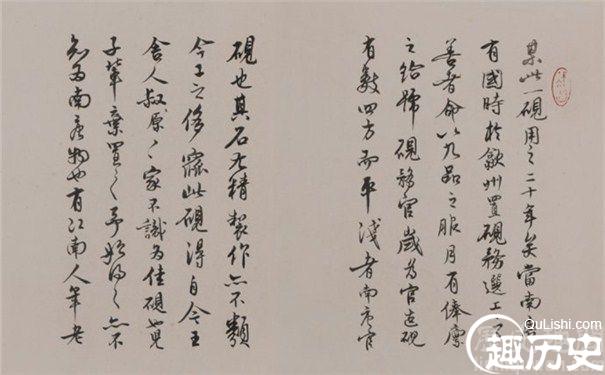 某此一硯用之二十年矣當南唐
有國時於歙州置硯務選工之
善者命以九品之服月有俸廩
之給號硯務官歲為官造硯
有數四方而平淺者南唐官
硯也其石尤精製作亦不類
今工之侈窳此硯得自今王
舍人叔原〻家不識為佳硯也兒
子輩棄置之予始得之亦不
知為南唐物也有江南人年老
QuLishi.com
趣历史